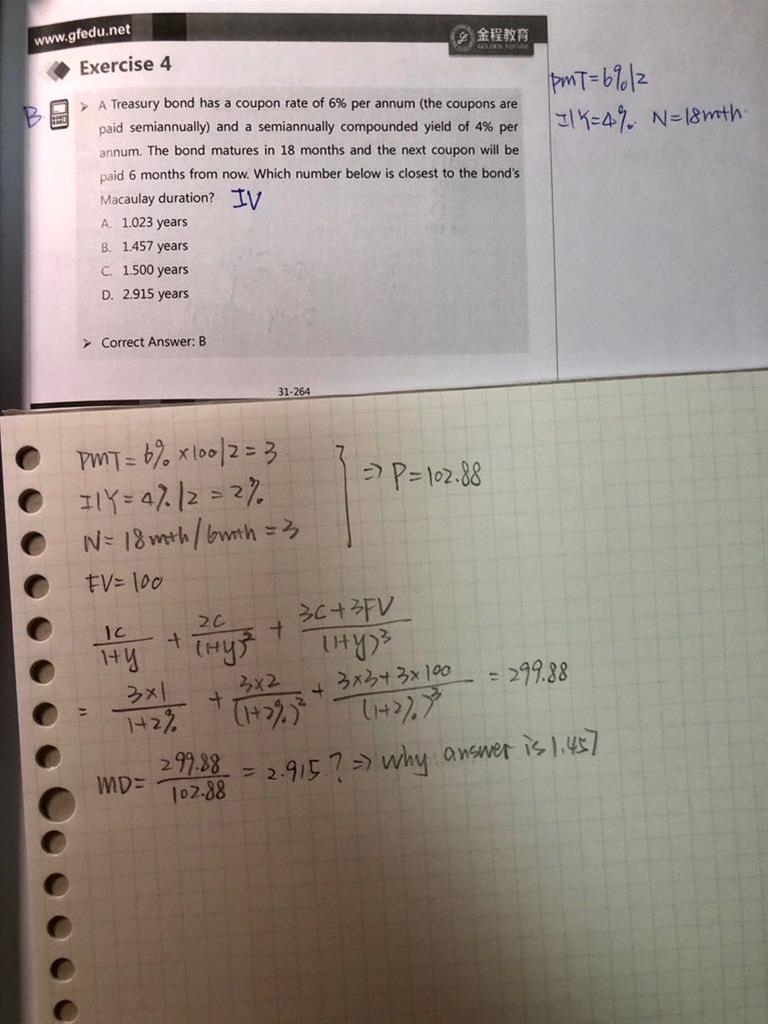 www.gfedu.net
金程教育
GOLDEN FUTURE
Exercise 4
B
➤ A Treasury bond has a coupon rate of 6% per annum (the coupons are
paid semiannually) and a semiannually compounded yield of 4% per
annum. The bond matures in 18 months and the next coupon will be
paid 6 months from now. Which number below is closest to the bond's
Macaulay duration? IV
A. 1.023 years
B. 1.457 years
C. 1.500 years
D. 2.915 years
➤ Correct Answer: B
31-264
PMT=6%/2
I/Y=4%. N=18mth.
PMT=6%×100/2=3
I/Y=4%/2=2%
N=18mth/6mth=3
FV=100
=> P=102.88
1C/1+y + 2C/(1+y)^2 + 3C+3FV/(1+y)^3
= 3×1/1+2% + 3×2/(1+2%)^2 + 3×3+3×100/(1+2%)^3 = 299.88
MD= 299.88/102.88 = 2.915? => why answer is 1.457